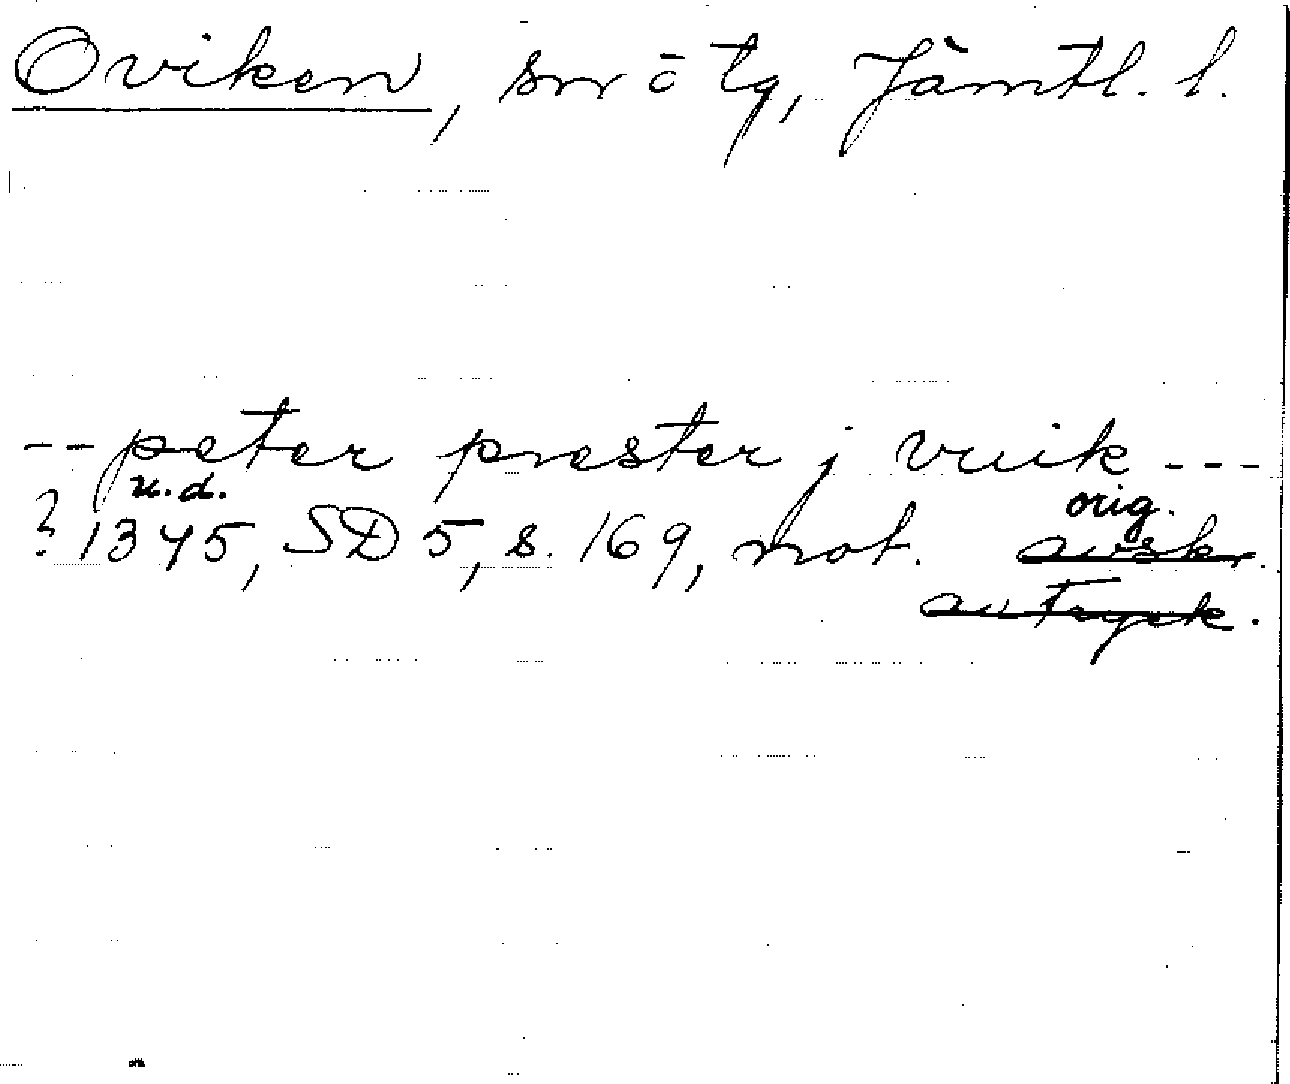 Oviken, sn o tg, Jämtl. l.
-- peter prester j vuik ---
u.d. orig.
? 1345, SD 5, s. 169, not. avskr.
avtryck.